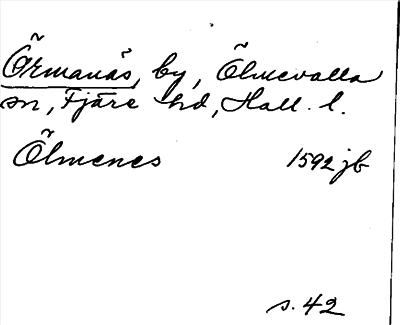 Örmanäs, by, Ölmevalla
sn, Fjäre hd, Hall. l.
Ölmenes 1592 jb
s. 42